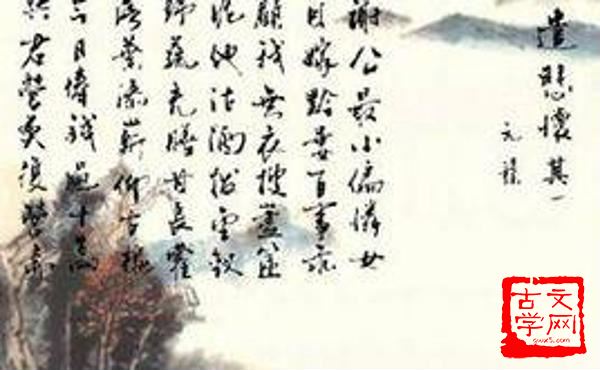 遣悲懷其一
元稹
謝公最小偏憐女
自嫁黔婁百事乖
顧我無衣搜藎篋
泥他沽酒拔金釵
野蔬充膳甘長藿
落葉添薪仰古槐
今日俸錢過十萬
與君營奠復營齋
古文
学网